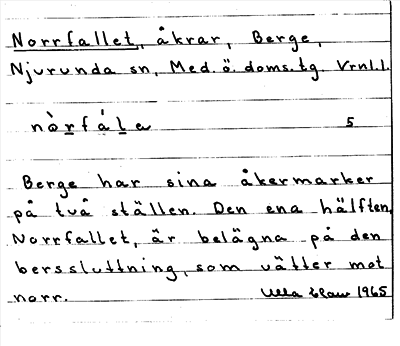 Norrfallet, åkrar, Berge,
Njurunda sn, Med. ö. doms.tg. Vrnl.l.
nòrfála 5
Berge har sina åkermarker
på två ställen. Den ena hälften,
Norrfallet, är belägna på den
berssluttning, som vätter mot
norr. Ulla 1965